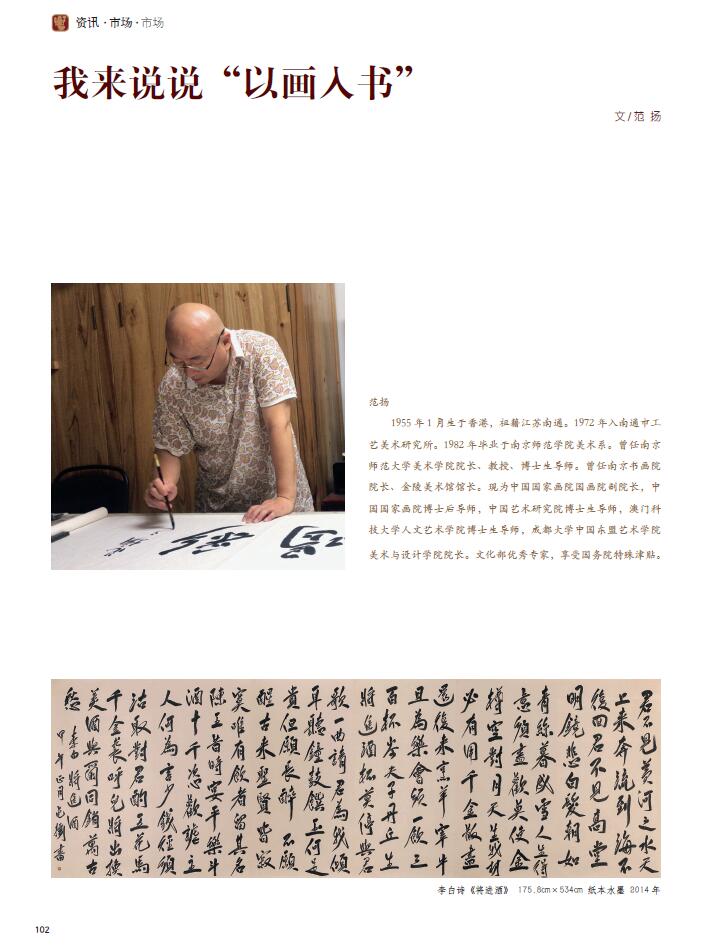 资讯·市场·市场
我来说说“以画入书”
文/范 扬
范扬
1955 年 1 月生于香港，祖籍江苏南通。1972 年入南通市工
艺美术研究所。1982 年毕业于南京师范学院美术系。曾任南京
师范大学美术学院院长、教授、博士生导师。曾任南京书画院
院长、金陵美术馆馆长。现为中国国家画院国画院副院长，中
国国家画院博士后导师，中国艺术研究院博士生导师，澳门科
技大学人文艺术学院博士生导师，成都大学中国东盟艺术学院
美术与设计学院院长。文化部优秀专家，享受国务院特殊津贴。
君不見黄河之水天
上来奔流到海不
復回君不見高堂
明鏡悲白髮朝如
青絲暮成雪人生得
意須盡歡莫使金
樽空對月天生我材
必有用千金散盡
還復来烹羊宰牛
且為樂會須一飲三
百杯岑夫子丹丘生
將進酒杯莫停與君
歌一曲請君為我傾
耳聽鐘鼓饌玉何足
貴但願長醉不願
醒古来聖賢皆寂
寞唯有飲者留其名
陳王昔時宴平樂斗
酒十千恣歡謔主
人何為言少錢徑須
沽取對君酌五花馬
千金裘呼兒將出換
美酒與爾同銷萬古
愁
李白將進酒
甲午正月范揚書
李白诗《将进酒》 175.8cm×534cm 纸本水墨 2014 年
102